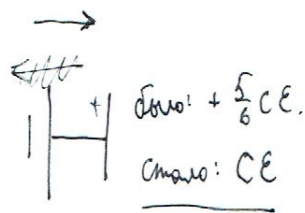 +
было: + 5/6 CE.
стало: CE